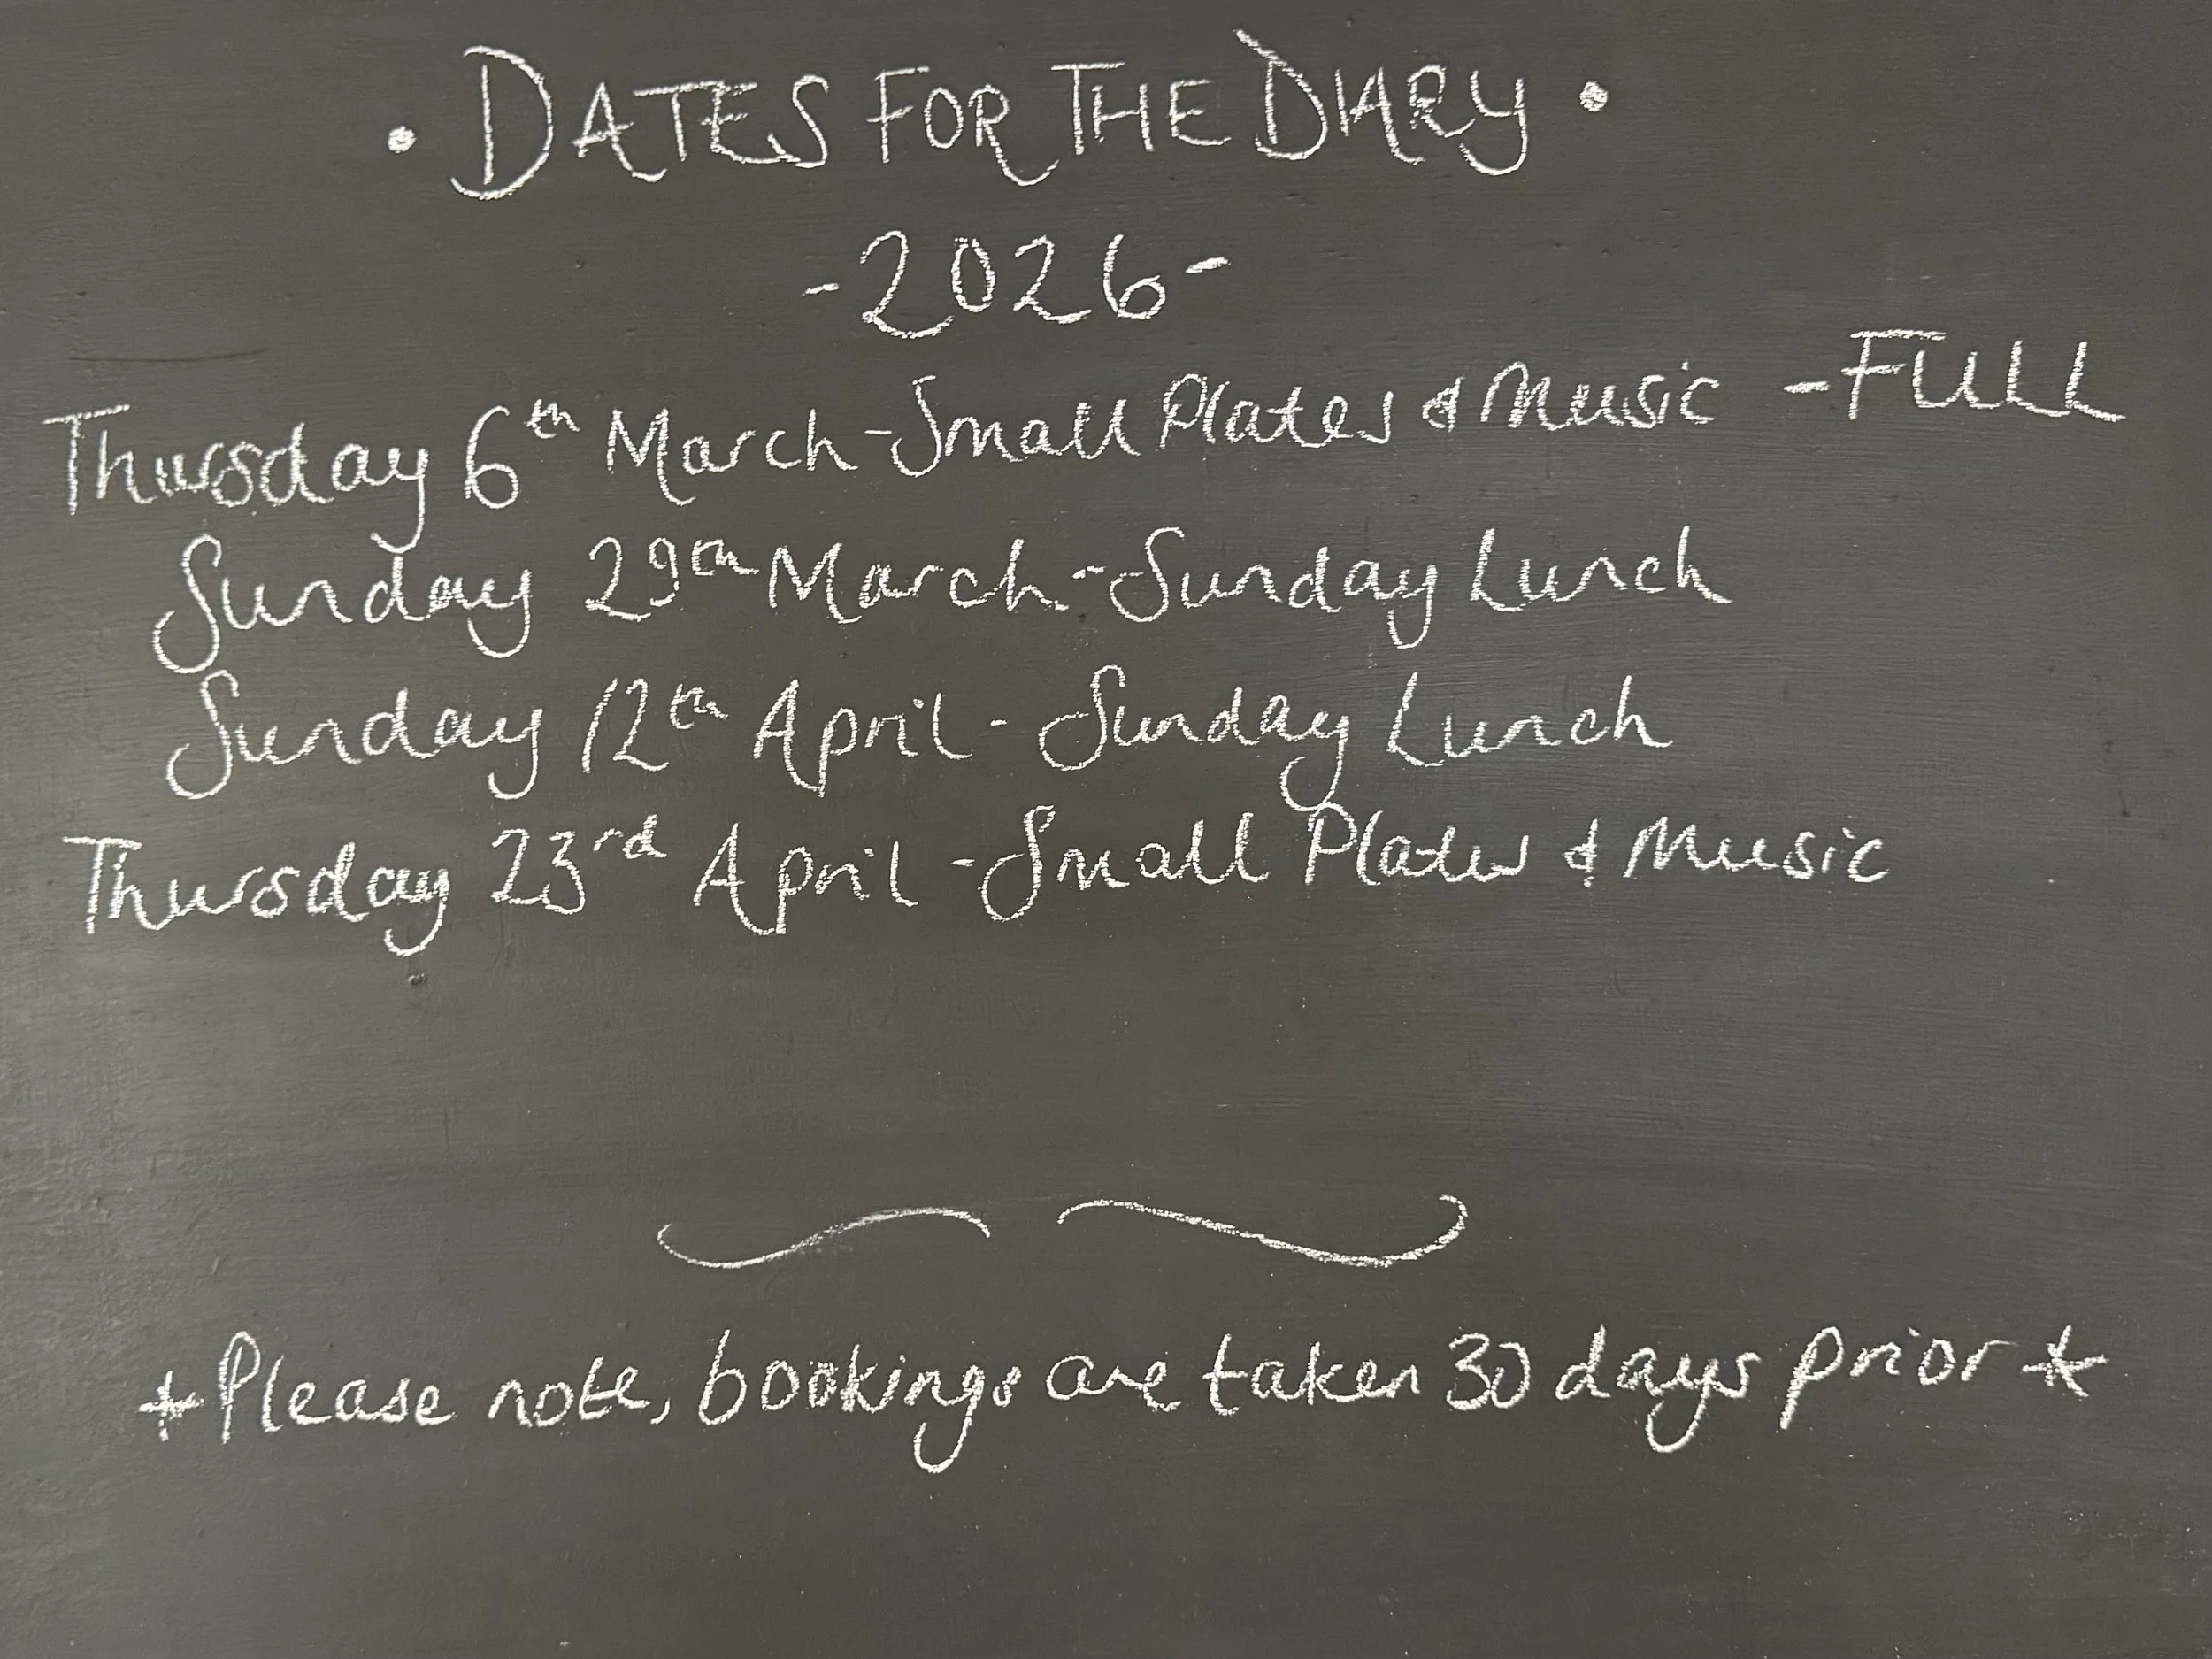 • DATES FOR THE DIARY •
-2026-
Thursday 6th March - Small Plates & Music - FULL
Sunday 29th March - Sunday Lunch
Sunday 12th April - Sunday Lunch
Thursday 23rd April - Small Plates & Music
*Please note, bookings are taken 30 days prior*